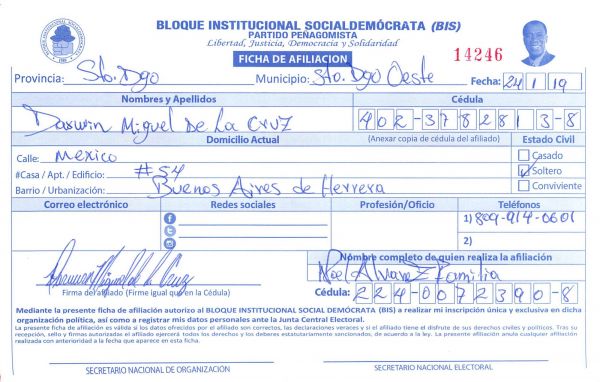 BLOQUE INSTITUCIONAL SOCIALDEMÓCRATA (BIS)
PARTIDO PEÑAGOMISTA
Libertad, Justicia, Democracia y Solidaridad
FICHA DE AFILIACION
14246
Provincia: Sto. Dgo Municipio: Sto. Dgo Oeste Fecha: 24 1 19
Nombres y Apellidos Cédula
Darwin Miguel De La Cruz 402-3782813-8
Domicilio Actual (Anexar copia de cédula del afiliado) Estado Civil
Calle: Mexico Casado
#Casa / Apt. / Edificio: #54 Soltero
Barrio / Urbanización: Buenos Aires de Herrera Conviviente
Correo electrónico Redes sociales Profesión/Oficio Teléfonos
1) 809-914-0601
2)
Nombre completo de quien realiza la afiliación
Noel Alvarez Familia
Darwin Miguel de la Cruz
Firma del afiliado (Firme igual que en la Cédula) Cédula: 224-0072390-8
Mediante la presente ficha de afiliación autorizo al BLOQUE INSTITUCIONAL SOCIAL DEMÓCRATA (BIS) a realizar mi inscripción única y exclusiva en dicha
organización política, así como a registrar mis datos personales ante la Junta Central Electoral.
La presente ficha de afiliación es válida si los datos ofrecidos por el afiliado son correctos, las declaraciones veraces y si el afiliado tiene el disfrute de sus derechos civiles y políticos. Tras su
recepción, sello y firmas autorizadas el afiliado ejercerá todos los derechos y los deberes estatutariamente sancionados, de acuerdo a la ley. La presente afiliación anula cualquier afiliación
realizada con anterioridad a la fecha que aparece en esta ficha.
SECRETARIO NACIONAL DE ORGANIZACIÓN SECRETARIO NACIONAL ELECTORAL